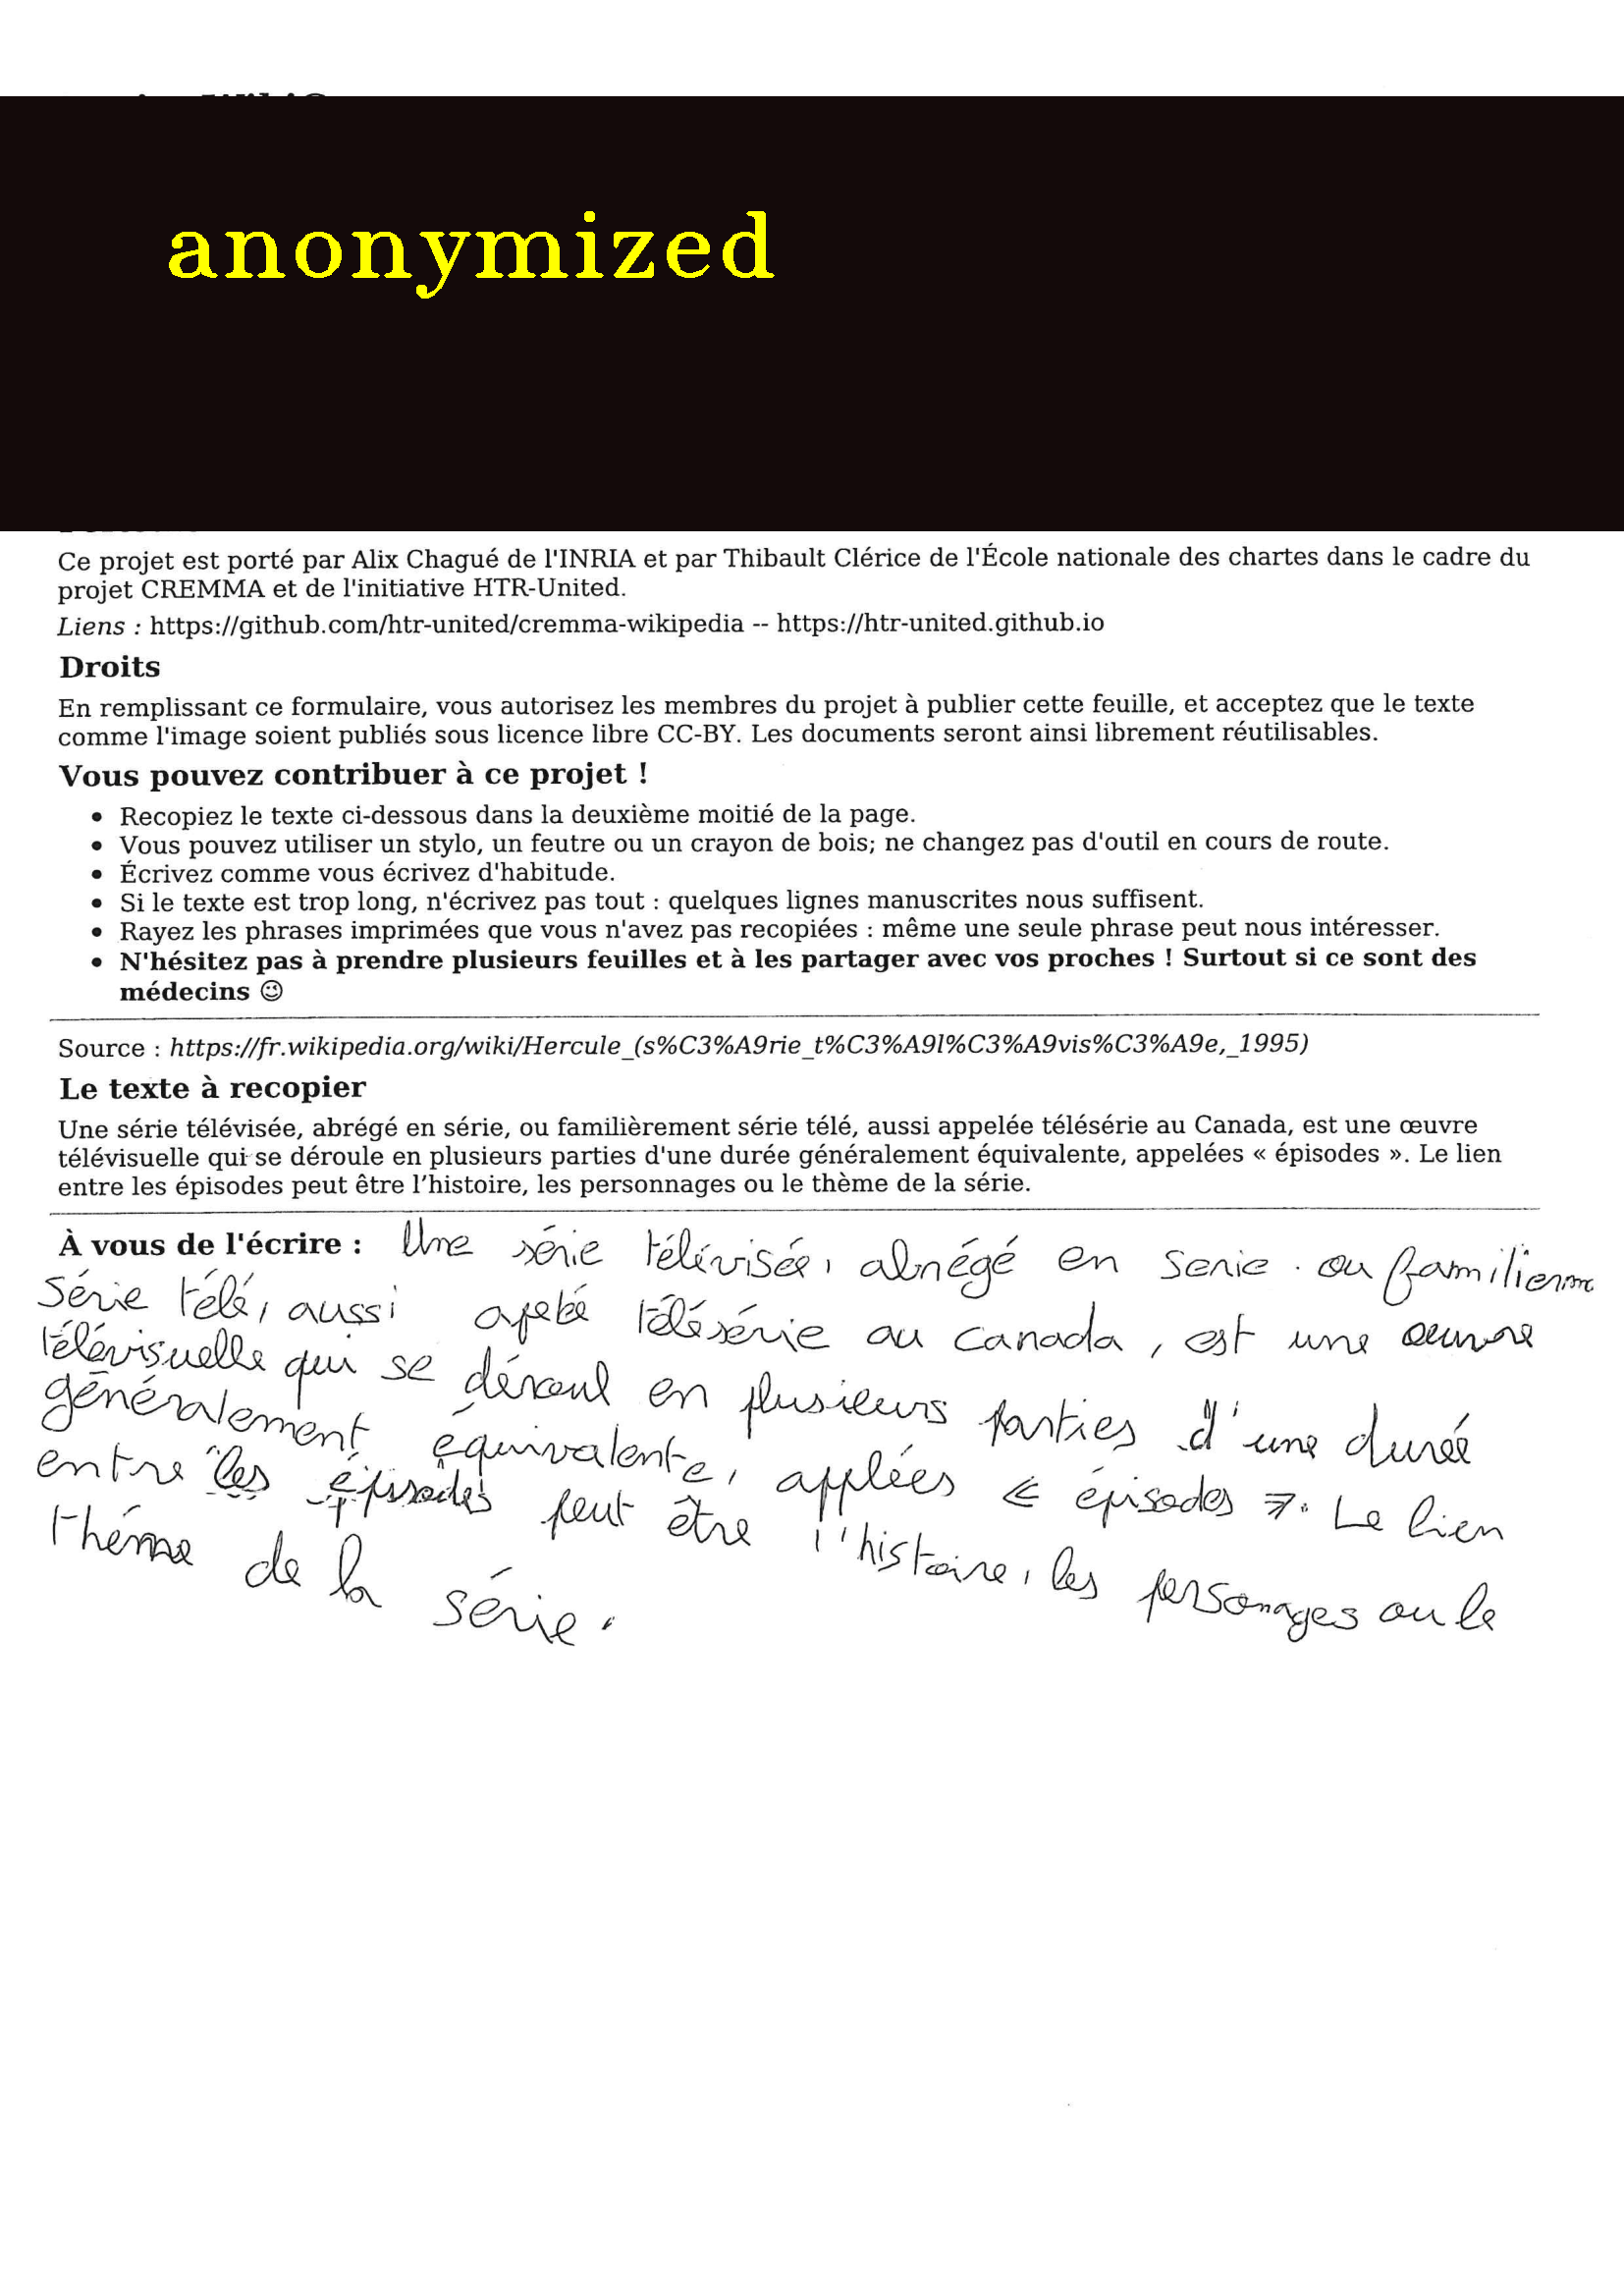 anonymized
Ce projet est porté par Alix Chagué de l'INRIA et par Thibault Clérice de l'École nationale des chartes dans le cadre du
projet CREMMA et de l'initiative HTR-United.
Liens : https://github.com/htr-united/cremma-wikipedia -- https://htr-united.github.io
Droits
En remplissant ce formulaire, vous autorisez les membres du projet à publier cette feuille, et acceptez que le texte
comme l'image soient publiés sous licence libre CC-BY. Les documents seront ainsi librement réutilisables.
Vous pouvez contribuer à ce projet !
• Recopiez le texte ci-dessous dans la deuxième moitié de la page.
• Vous pouvez utiliser un stylo, un feutre ou un crayon de bois; ne changez pas d'outil en cours de route.
• Écrivez comme vous écrivez d'habitude.
• Si le texte est trop long, n'écrivez pas tout : quelques lignes manuscrites nous suffisent.
• Rayez les phrases imprimées que vous n'avez pas recopiées : même une seule phrase peut nous intéresser.
• N'hésitez pas à prendre plusieurs feuilles et à les partager avec vos proches ! Surtout si ce sont des
médecins 😉
Source : https://fr.wikipedia.org/wiki/Hercule_(s%C3%A9rie_t%C3%A9l%C3%A9vis%C3%A9e,_1995)
Le texte à recopier
Une série télévisée, abrégé en série, ou familièrement série télé, aussi appelée télésérie au Canada, est une œuvre
télévisuelle qui se déroule en plusieurs parties d'une durée généralement équivalente, appelées « épisodes ». Le lien
entre les épisodes peut être l'histoire, les personnages ou le thème de la série.
À vous de l'écrire : Une série télévisée, abrégé en serie. ou familierm
Série télé, aussi apelé télésérie au canada, est une œuvre
télévisuelle qui se déroul en plusieurs parties d'une durée
généralement équivalente, applées « épisodes ». Le lien
entre les épisodes peut être l'histoire, les personages ou le
théme de la série.